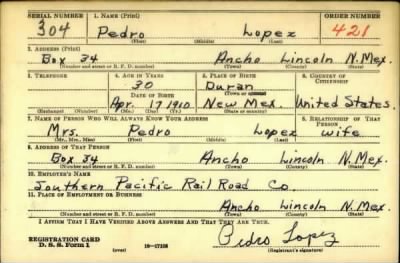 SERIAL NUMBER 1. NAME (Print) ORDER NUMBER
304 Pedro Lopez 421
(First) (Middle) (Last)
2. ADDRESS (Print)
Box 34 Ancho Lincoln N. Mex.
(Number and street or R. F. D. number) (Town) (County) (State)
3. TELEPHONE 4. AGE IN YEARS 5. PLACE OF BIRTH 6. COUNTRY OF CITIZENSHIP
30 Duran
DATE OF BIRTH (Town or county)
Apr. 17 1910 New Mex. United States.
(Exchange) (Number) (Mo.) (Day) (Yr.) (State or country)
7. NAME OF PERSON WHO WILL ALWAYS KNOW YOUR ADDRESS 8. RELATIONSHIP OF THAT PERSON
Mrs. Pedro Lopez wife
(Mr., Mrs., Miss) (First) (Middle) (Last)
9. ADDRESS OF THAT PERSON
Box 34 Ancho Lincoln N. Mex.
(Number and street or R. F. D. number) (Town) (County) (State)
10. EMPLOYER'S NAME
Southern Pacific Rail Road Co.
11. PLACE OF EMPLOYMENT OR BUSINESS
Ancho Lincoln N. Mex.
(Number and street or R. F. D. number) (Town) (County) (State)
I AFFIRM THAT I HAVE VERIFIED ABOVE ANSWERS AND THAT THEY ARE TRUE.
REGISTRATION CARD Pedro Lopez
D. S. S. Form 1 (over) (Registrant's signature)